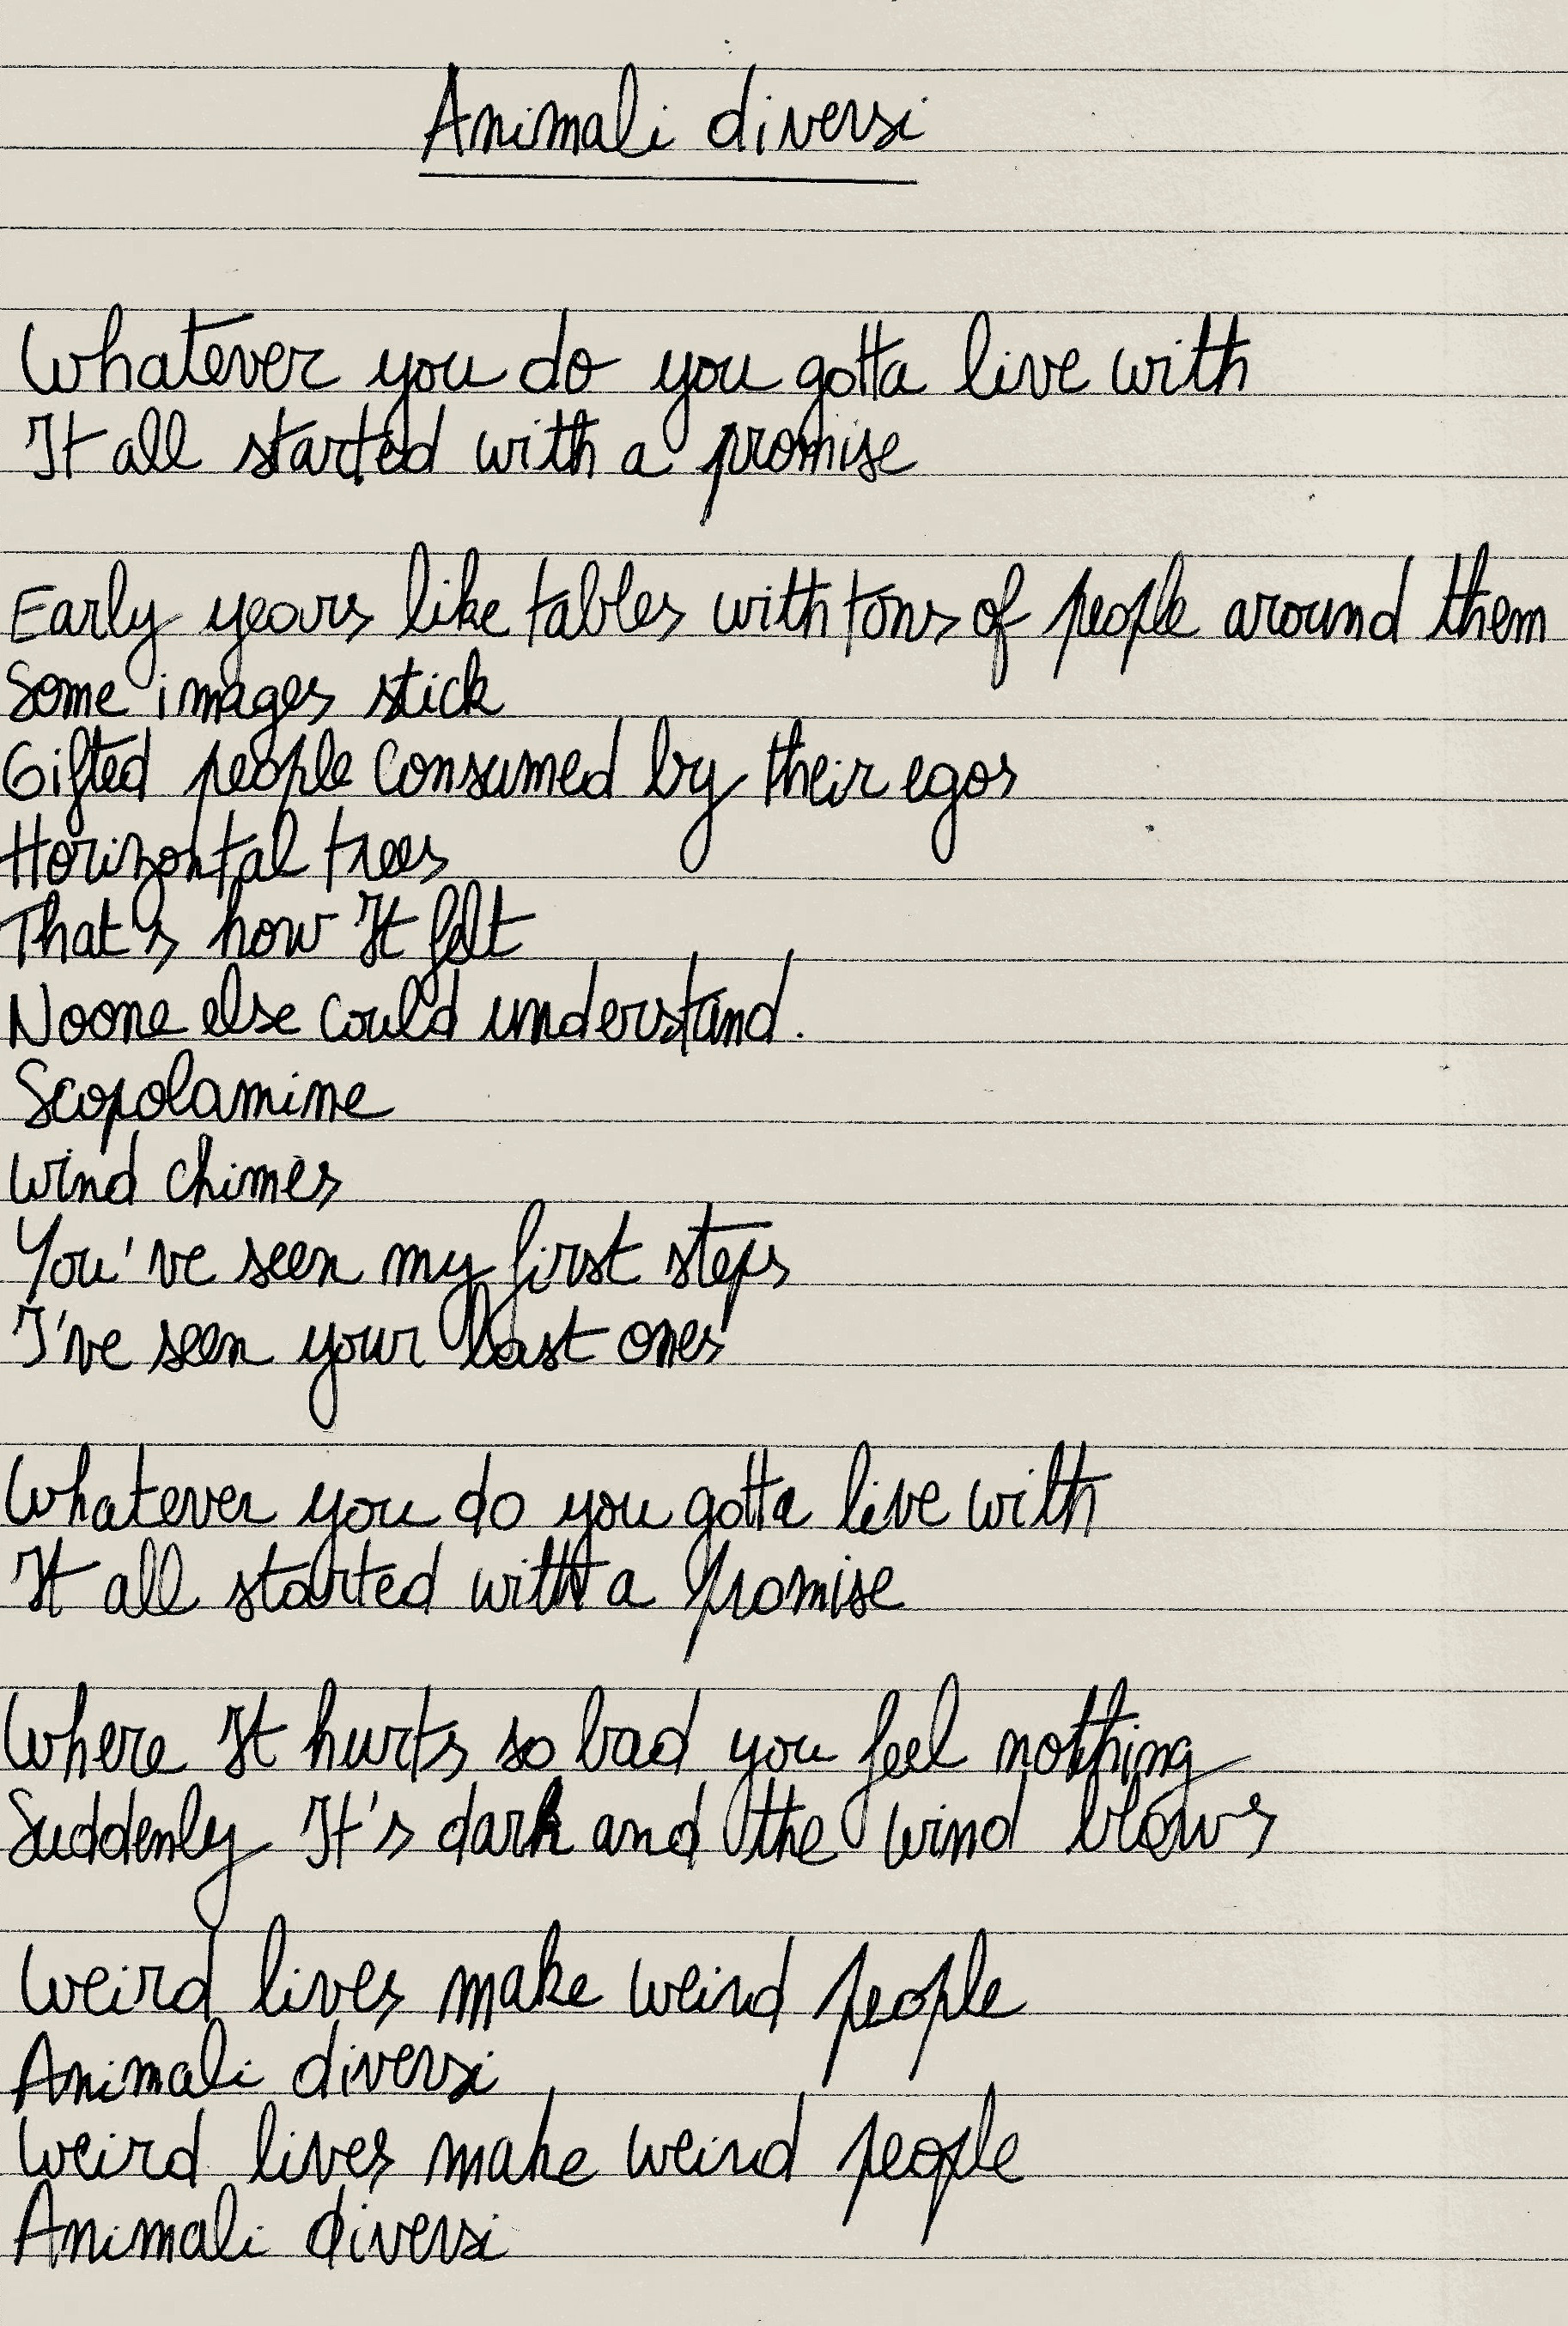 Animali diversi
Whatever you do you gotta live with
It all started with a promise
Early years like tables with tons of people around them
Some images stick
Gifted people consumed by their egos
Horizontal trees
That's how It felt
Noone else could understand.
Scopolamine
Wind chimes
You've seen my first steps
I've seen your last ones
Whatever you do you gotta live with
It all started with a promise
Where It hurts so bad you feel nothing
Suddenly It's dark and the wind blows
Weird lives make weird people
Animali diversi
Weird lives make weird people
Animali diversi